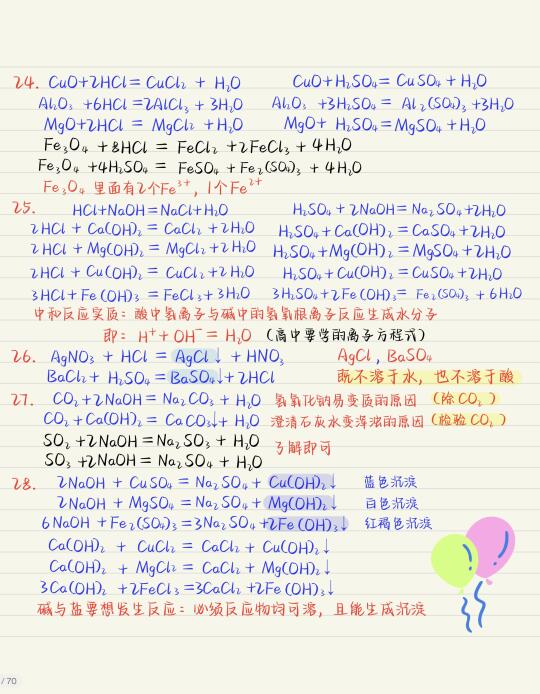 24. CuO+2HCl=CuCl₂ + H₂O CuO+H₂SO₄=CuSO₄+H₂O
Al₂O₃ +6HCl=2AlCl₃ +3H₂O Al₂O₃ +3H₂SO₄= Al₂(SO₄)₃ +3H₂O
MgO+2HCl= MgCl₂ +H₂O MgO+ H₂SO₄=MgSO₄ +H₂O
Fe₃O₄ +8HCl = FeCl₂ +2FeCl₃ +4H₂O
Fe₃O₄ +4H₂SO₄ = FeSO₄ + Fe₂(SO₄)₃ + 4H₂O
Fe₃O₄ 里面有2个Fe³⁺, 1个Fe²⁺
25. HCl+NaOH=NaCl+H₂O H₂SO₄ + 2NaOH= Na₂SO₄+2H₂O
2HCl + Ca(OH)₂ = CaCl₂ +2H₂O H₂SO₄+Ca(OH)₂ = CaSO₄+2H₂O
2HCl + Mg(OH)₂ = MgCl₂ +2H₂O H₂SO₄+Mg(OH)₂ = MgSO₄+2H₂O
2HCl + Cu(OH)₂ = CuCl₂ +2H₂O H₂SO₄+Cu(OH)₂ = CuSO₄+2H₂O
3HCl+Fe(OH)₃ = FeCl₃+3H₂O 3H₂SO₄+2Fe(OH)₃ = Fe₂(SO₄)₃ + 6H₂O
中和反应实质: 酸中氢离子与碱中的氢氧根离子反应生成水分子
即: H⁺+OH⁻= H₂O (高中要学的离子方程式)
26. AgNO₃ + HCl = AgCl↓ + HNO₃ AgCl , BaSO₄
BaCl₂ + H₂SO₄=BaSO₄↓+2HCl 既不溶于水, 也不溶于酸
27. CO₂+2NaOH = Na₂CO₃ + H₂O 氢氧化钠易变质的原因 (除CO₂)
CO₂+Ca(OH)₂ = CaCO₃↓+ H₂O 澄清石灰水变浑浊的原因 (检验CO₂)
SO₂ +2NaOH=Na₂SO₃ + H₂O
了解即可
SO₃ +2NaOH = Na₂SO₄ + H₂O
28. 2NaOH + CuSO₄ = Na₂SO₄ + Cu(OH)₂↓ 蓝色沉淀
2NaOH + MgSO₄ = Na₂SO₄ + Mg(OH)₂↓ 白色沉淀
6NaOH +Fe₂(SO₄)₃=3Na₂SO₄+2Fe(OH)₃↓ 红褐色沉淀
Ca(OH)₂ + CuCl₂ = CaCl₂ + Cu(OH)₂↓
Ca(OH)₂ + MgCl₂ = CaCl₂ + Mg(OH)₂↓
3Ca(OH)₂ +2FeCl₃=3CaCl₂ +2Fe(OH)₃↓
碱与盐要想发生反应: 必须反应物均可溶, 且能生成沉淀
/ 70